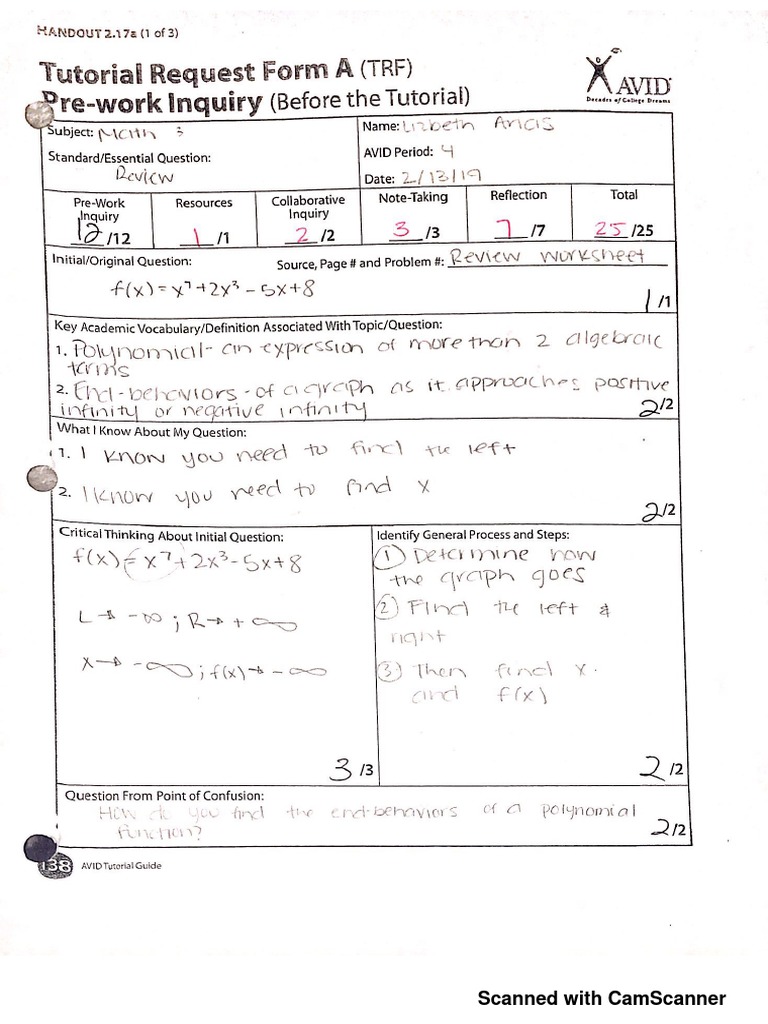 HANDOUT 2.17a (1 of 3)
Tutorial Request Form A (TRF)
Pre-work Inquiry (Before the Tutorial)
AVID
Decades of College Dreams
Subject: Math 3
Name: Lizbeth
Standard/Essential Question:
Review
AVID Period: 4
Date: 2/13/19
Pre-Work Inquiry
12/12
Resources
1/1
Collaborative Inquiry
2/2
Note-Taking
3/3
Reflection
7/7
Total
25/25
Initial/Original Question:
Source, Page # and Problem #: Review worksheet
f(x)=x⁷+2x³-5x+8
1/1
Key Academic Vocabulary/Definition Associated With Topic/Question:
1. Polynomial- an expression of more than 2 algebraic
terms
2. End-behaviors- of a graph as it approaches positive
infinity or negative infinity
2/2
What I Know About My Question:
1. I know you need to find the left
2. I know you need to find x
2/2
Critical Thinking About Initial Question:
f(x)=x⁷+2x³-5x+8
L→ -∞; R→ +∞
x→ -∞; f(x)→ -∞
3/3
Identify General Process and Steps:
① Determine how
the graph goes
② Find the left &
right
③ Then find x.
and f(x)
2/2
Question From Point of Confusion:
How do you find the end-behaviors of a polynomial
function?
2/2
138 AVID Tutorial Guide
Scanned with CamScanner